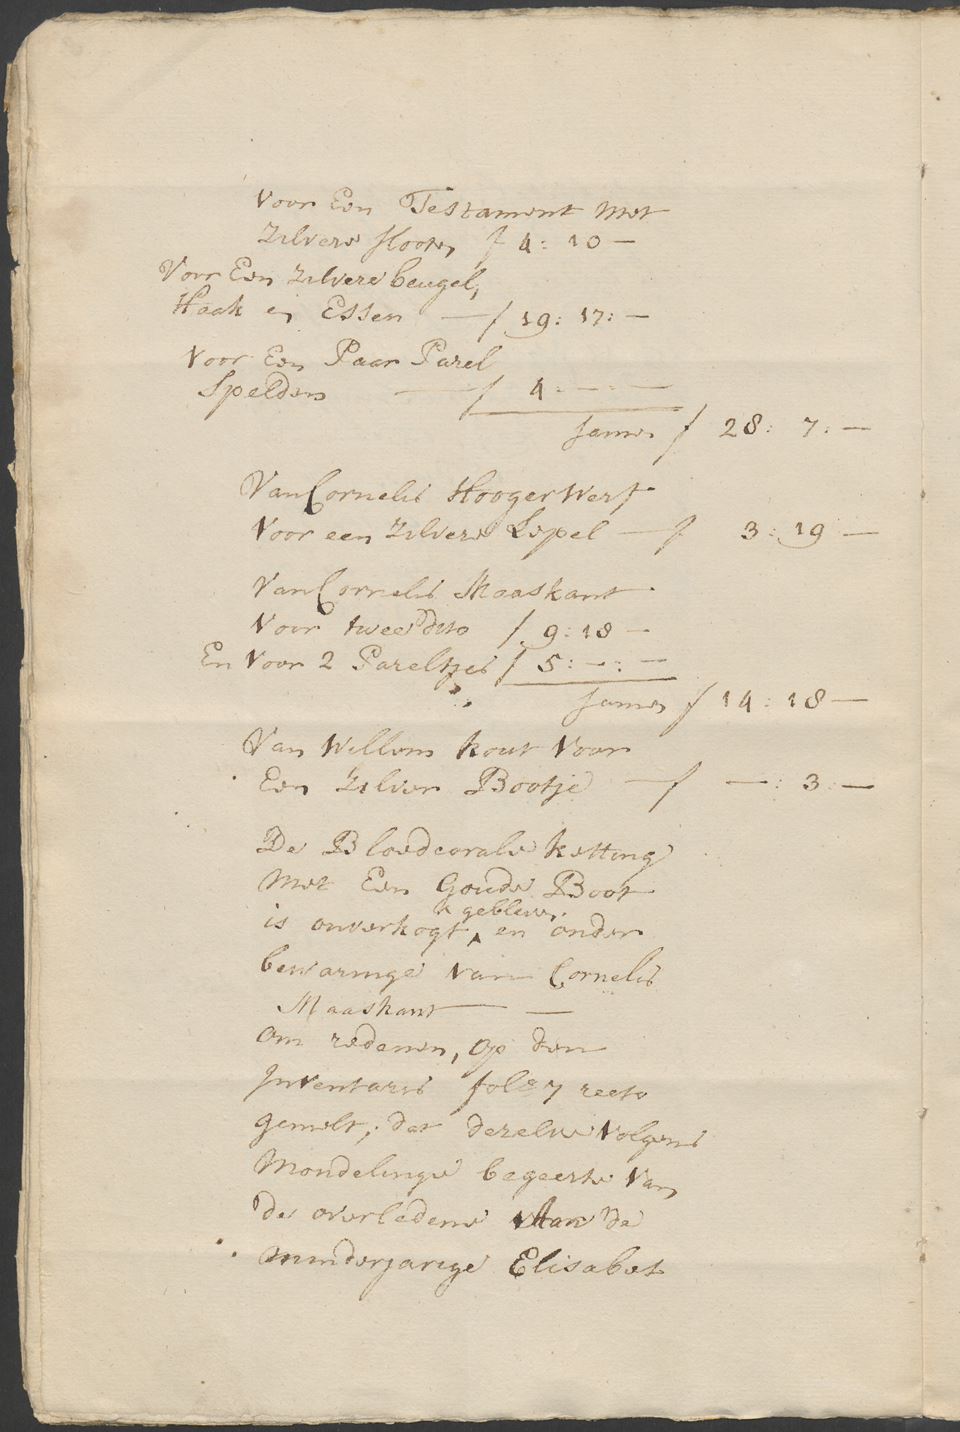 Voor Een Testament Met
Zilvere slooten f 4: 10 —
Voor Een zilvere beugel,
Haak en Essen — f 19: 17: —
Voor Een Paar Parel
Spelden — f 4: —: —
samen f 28: 7: —
Van Cornelis Hoogerwerf
Voor een zilvere Lepel — f 3: 19 —
Van Cornelis Maaskant
Voor twee dito f 9: 18 —
En Voor 2 Pareltjes f 5: —: —
samen f 14: 18 —
Van Willem kout Voor
Een Zilver Bootje — f —: 3: —
De Bloedcorale ketting
Met Een Goude Boot
gebleven
is onverkogt ^ en onder
bewaringe van Cornelis
Maaskant — —
om redenen, op den
Inventaris folo 7 recto
gemelt, dat dezelve volgens
Mondelinge begeerte Van
de overledene Aan de
minderjarige Elisabet